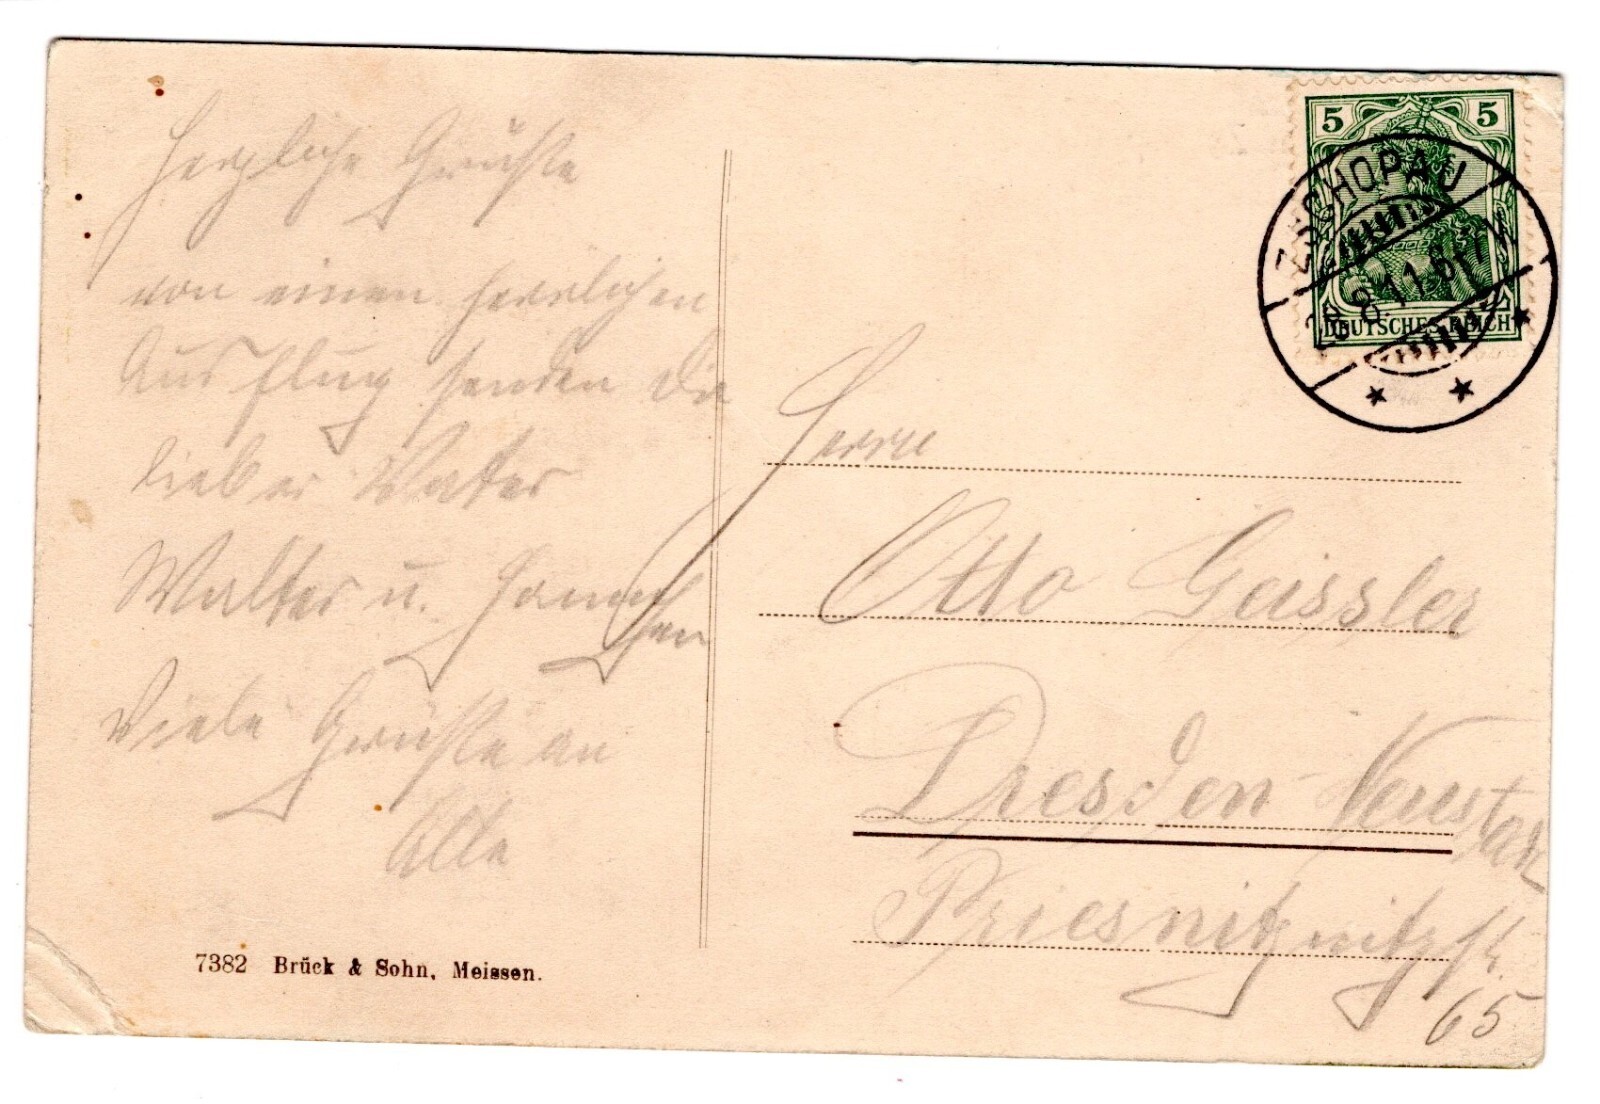 Herzliche Grüße
von einen herrlichen
Ausflug senden Dir
lieber Vater
Walter u.
Viele Grüße an
Alle
7382 Brück & Sohn, Meissen.
5 5
DEUTSCHES REICH
ZSCHOPAU
8.11.
Herrn
Otto Geissler
Dresden-Neustadt
65